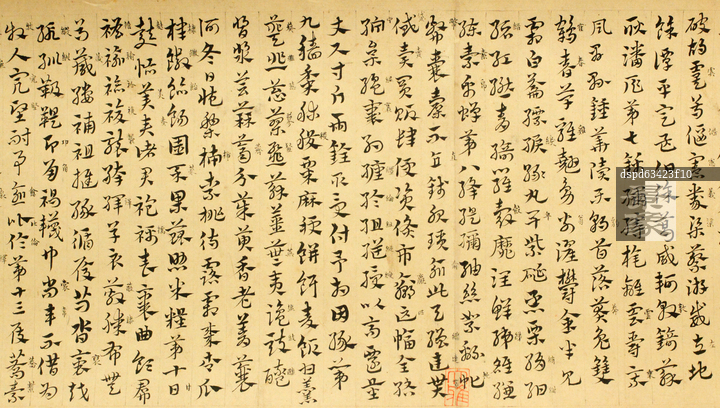 破胡虞尊偃憲義渠蔡游威左地
餘譚平定孟伯徐葛咸軻敦錡蘇
耿潘扈第七錦繡縵旄離雲爵乘
風縣鍾華洞樂豹首落莫兔雙
鶴春草雞翹鳧翁濯鬱金半見
霜白䵂縹綟綠丸皁紫硟烝栗絹紺
縉紅繎青綺羅縠靡潤鮮綈雒縑
練素帛蟬第八絳緹絓紬絲絮綿
敝囊橐不直錢服瑣緰此與繒連貰
貸賣買販肆便資貨市贏匹幅全給
紵枲縕裹約纏綸組縌綬以高遷量
丈尺寸斤兩銓取受付予相因緣第
九稻黍秫稷粟麻秔餅餌麥飯甘豆羹
葵韭葱蓼韰蘇薑蕪荑鹽豉醯
酢漿芸蒜薺介茱萸香老菁蘘
何冬日臧梨柿柰桃待露霜棗杏瓜
棣饊飴餳園菜果蓏助米糧第十日
麩恬美奏諸君袍襦表裏曲領帬
襜褕袷複褶袴褌單衣蔽膝布無
尊箴縷補袒摧緣循履舃鞜裒絨
緞紃靸鞮卬角褐襪巾尚韋不借為
牧人完堅耐事逾比倫第十三屐屩麤
dspd63423f10